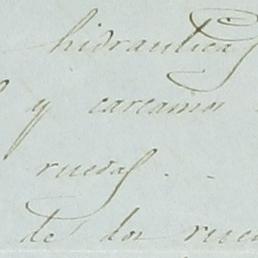 hidraulicas
y carcamos
ruedas.
de dos rue